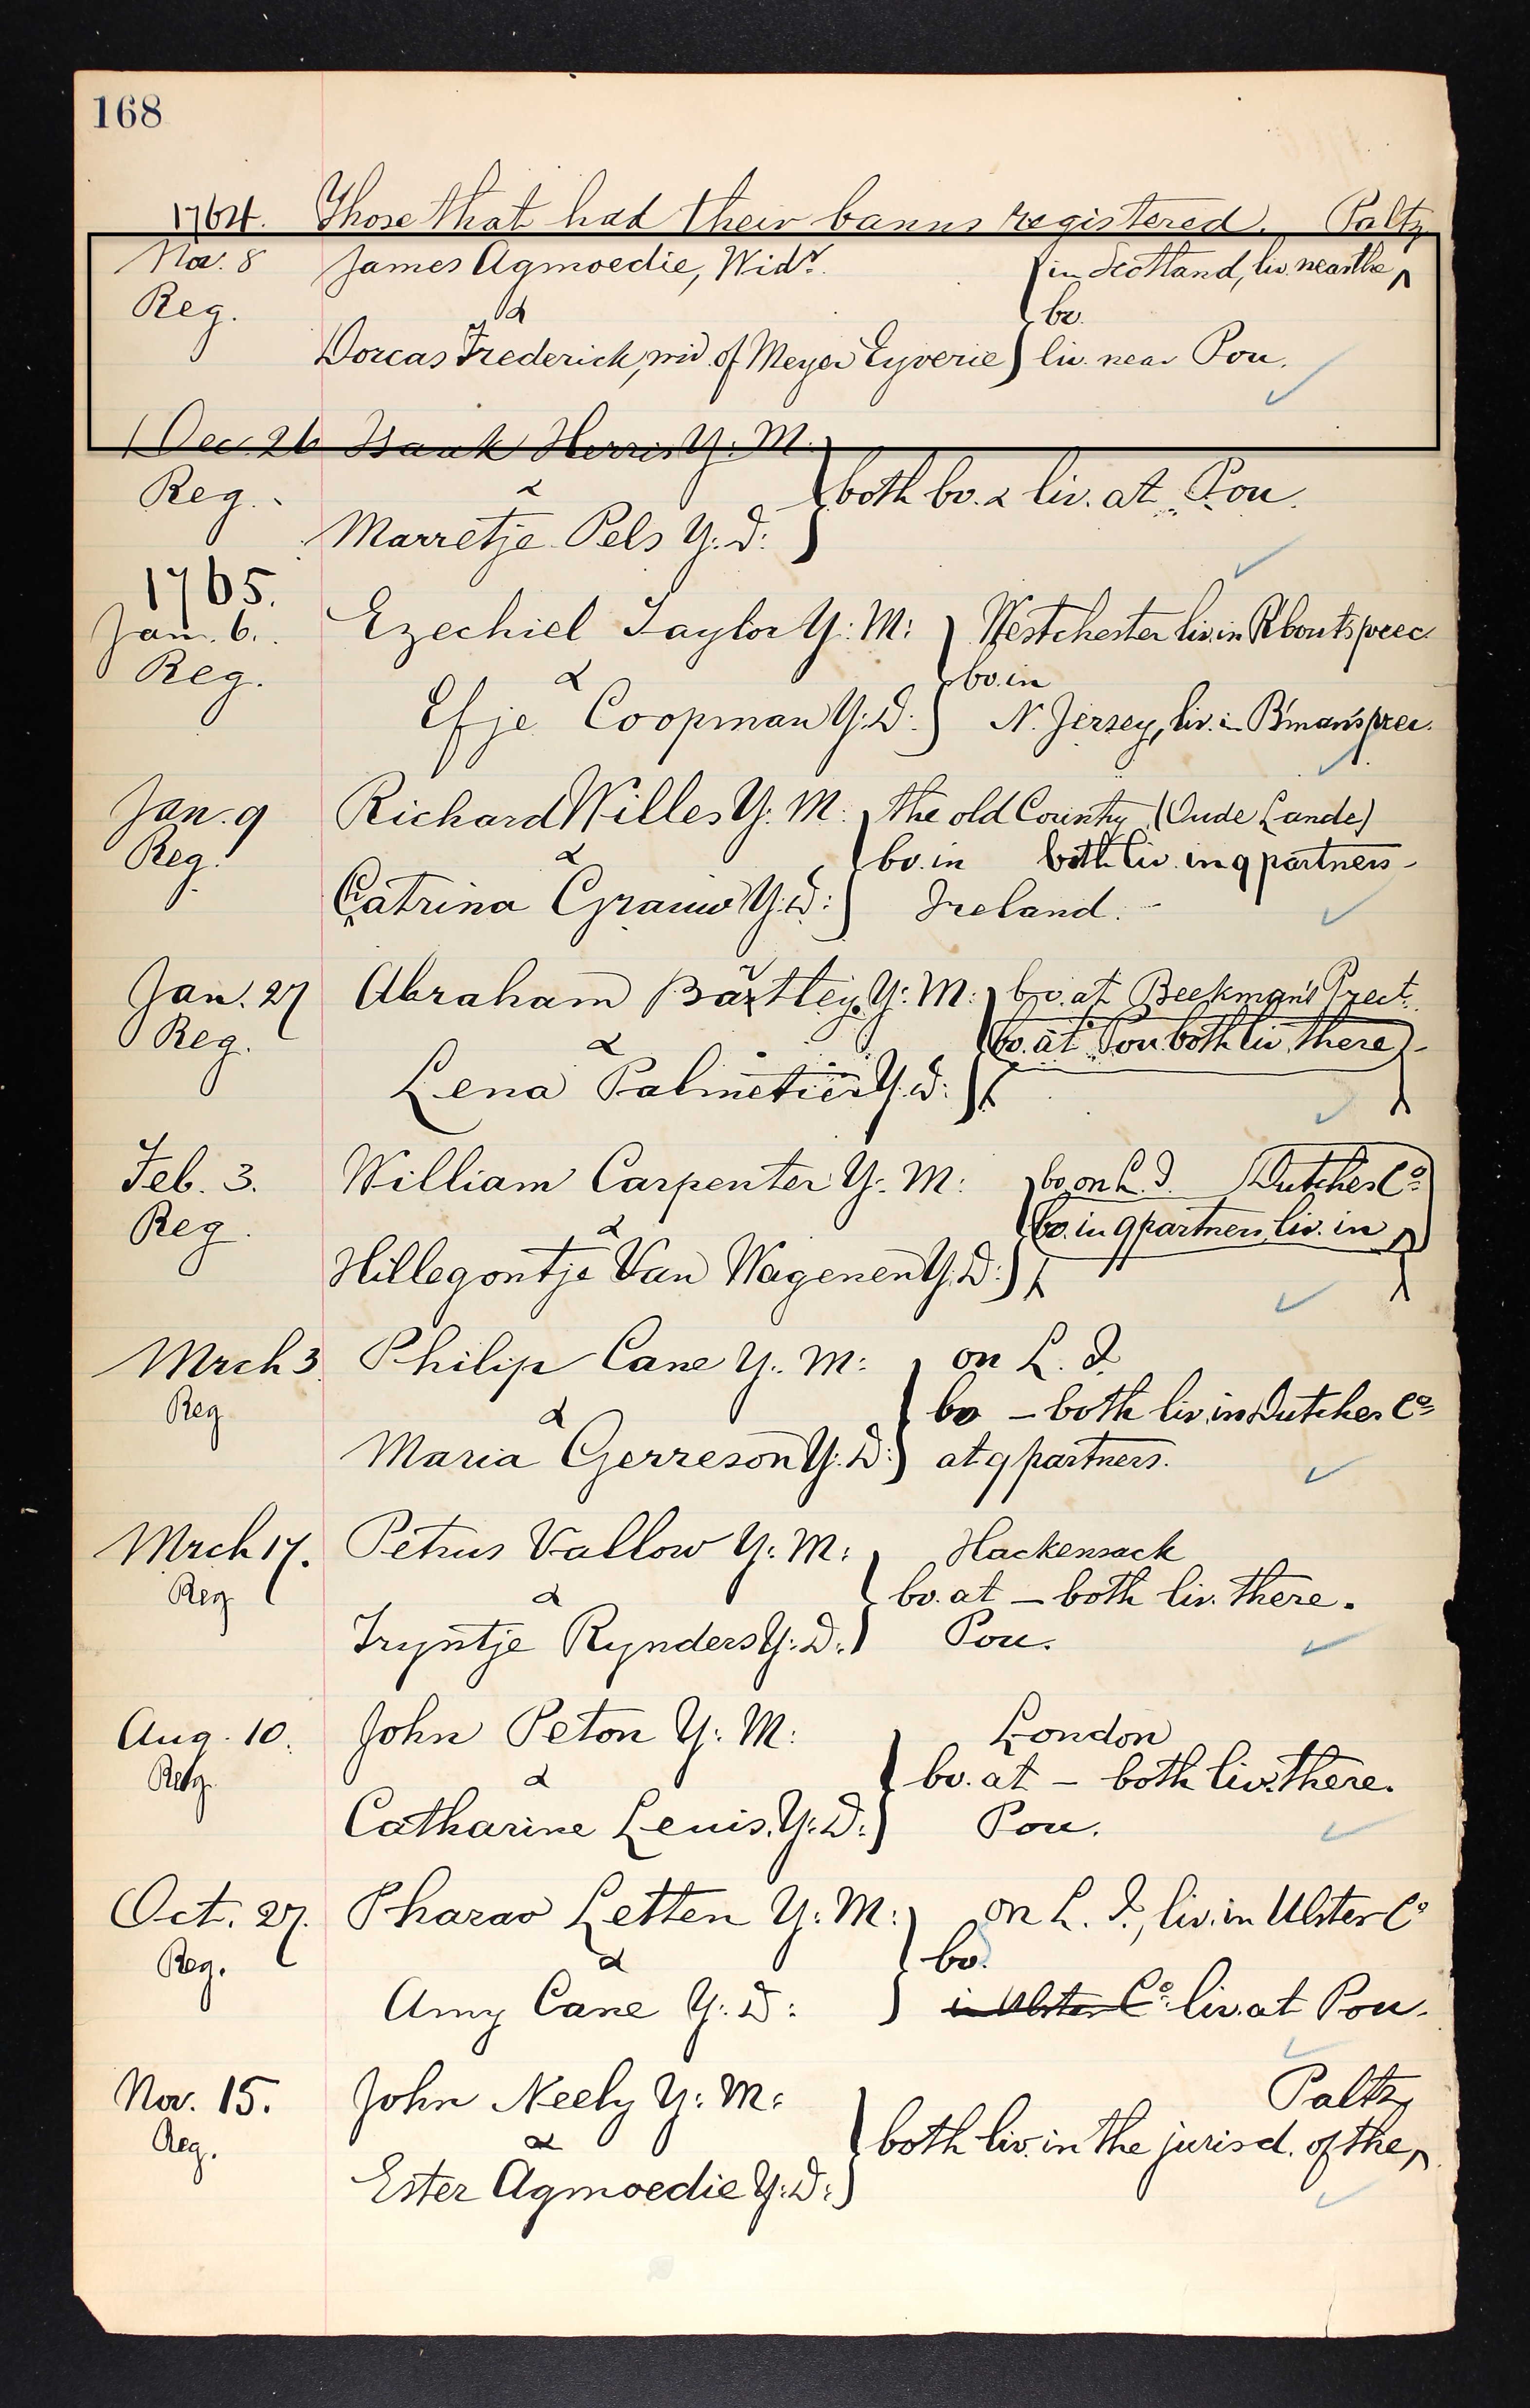 168
1764. Those that had their banns registered. Paltz
Nov. 8 James Agmoedie, Widr. in Scotland, liv. near the
Reg. & bo.
Dorcas Frederick, wid. of Meyer Eyverie liv. near Pou.
Dec. 26 Isaak Herris Y. M.
Reg. & both bo. & liv. at Pou.
Marretje Pels Y. D:
1765.
Jan. 6. Ezechiel Taylor Y: M: Westchester liv. in R'bouts prec.
Reg. & bo. in
Efje Coopman Y: D: N. Jersey, liv. in B'man's prec.
Jan. 9 Richard Willes Y: M. the old Country (Oude Lande)
Reg. & bo. in both liv. in 9 partners
Catrina Grauw Y: D: Ireland.
Jan. 27 Abraham Bartley Y: M: bo. at Beekman's Prect.
Reg. & bo. at Pou. both liv. there
Lena Palmetier Y. D:
Feb. 3. William Carpenter Y: M: bo. on L. I. Dutches Co.
Reg. & bo. in 9 partners, liv. in
Hillegontje Van Wagenen Y. D:
Mrch 3 Philip Cane Y: M: on L. I.
Reg & bo – both liv. in Dutches Co.
Maria Gerreson Y. D: at 9 partners.
Mrch 17. Petrus Vallow Y: M: Hackensack
Reg & bo. at – both liv. there.
Tryntje Rynders Y: D: Pou.
Aug. 10. John Peton Y: M: London
Reg. & bo. at – both liv. there.
Catharine Leuis, Y: D: Pou.
Oct. 27. Pharao Letten Y: M: on L. I., liv. in Ulster Co
Reg. & bo.
Amy Cane Y: D: in Ulster Co: liv. at Pou.
Nov. 15. John Neely Y: M: Paltz
Reg. & both liv. in the jurisd. of the
Ester Agmoedie Y: D: